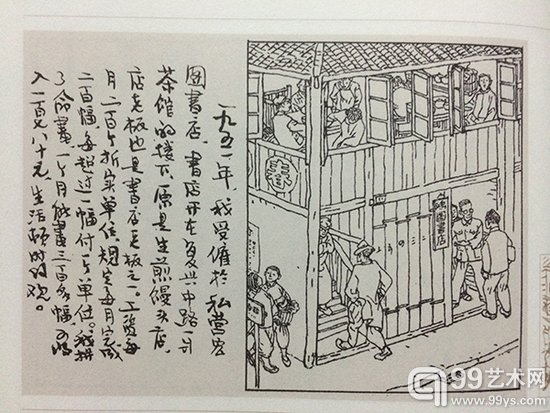 一九五一年,我受雇於私营宏
图書店,書店开在复兴中路一片
茶馆的楼下,原是生煎馒头店
店老板也是書店老板之一,工资每
月二百个折实单位,规定每月完成
二百幅,每超过一幅付单位。我拼
了命畫,一个月能畫三百多幅可
入一百八十元,生活顿时改观。
宏图書店
99艺术网
www.99ys.com